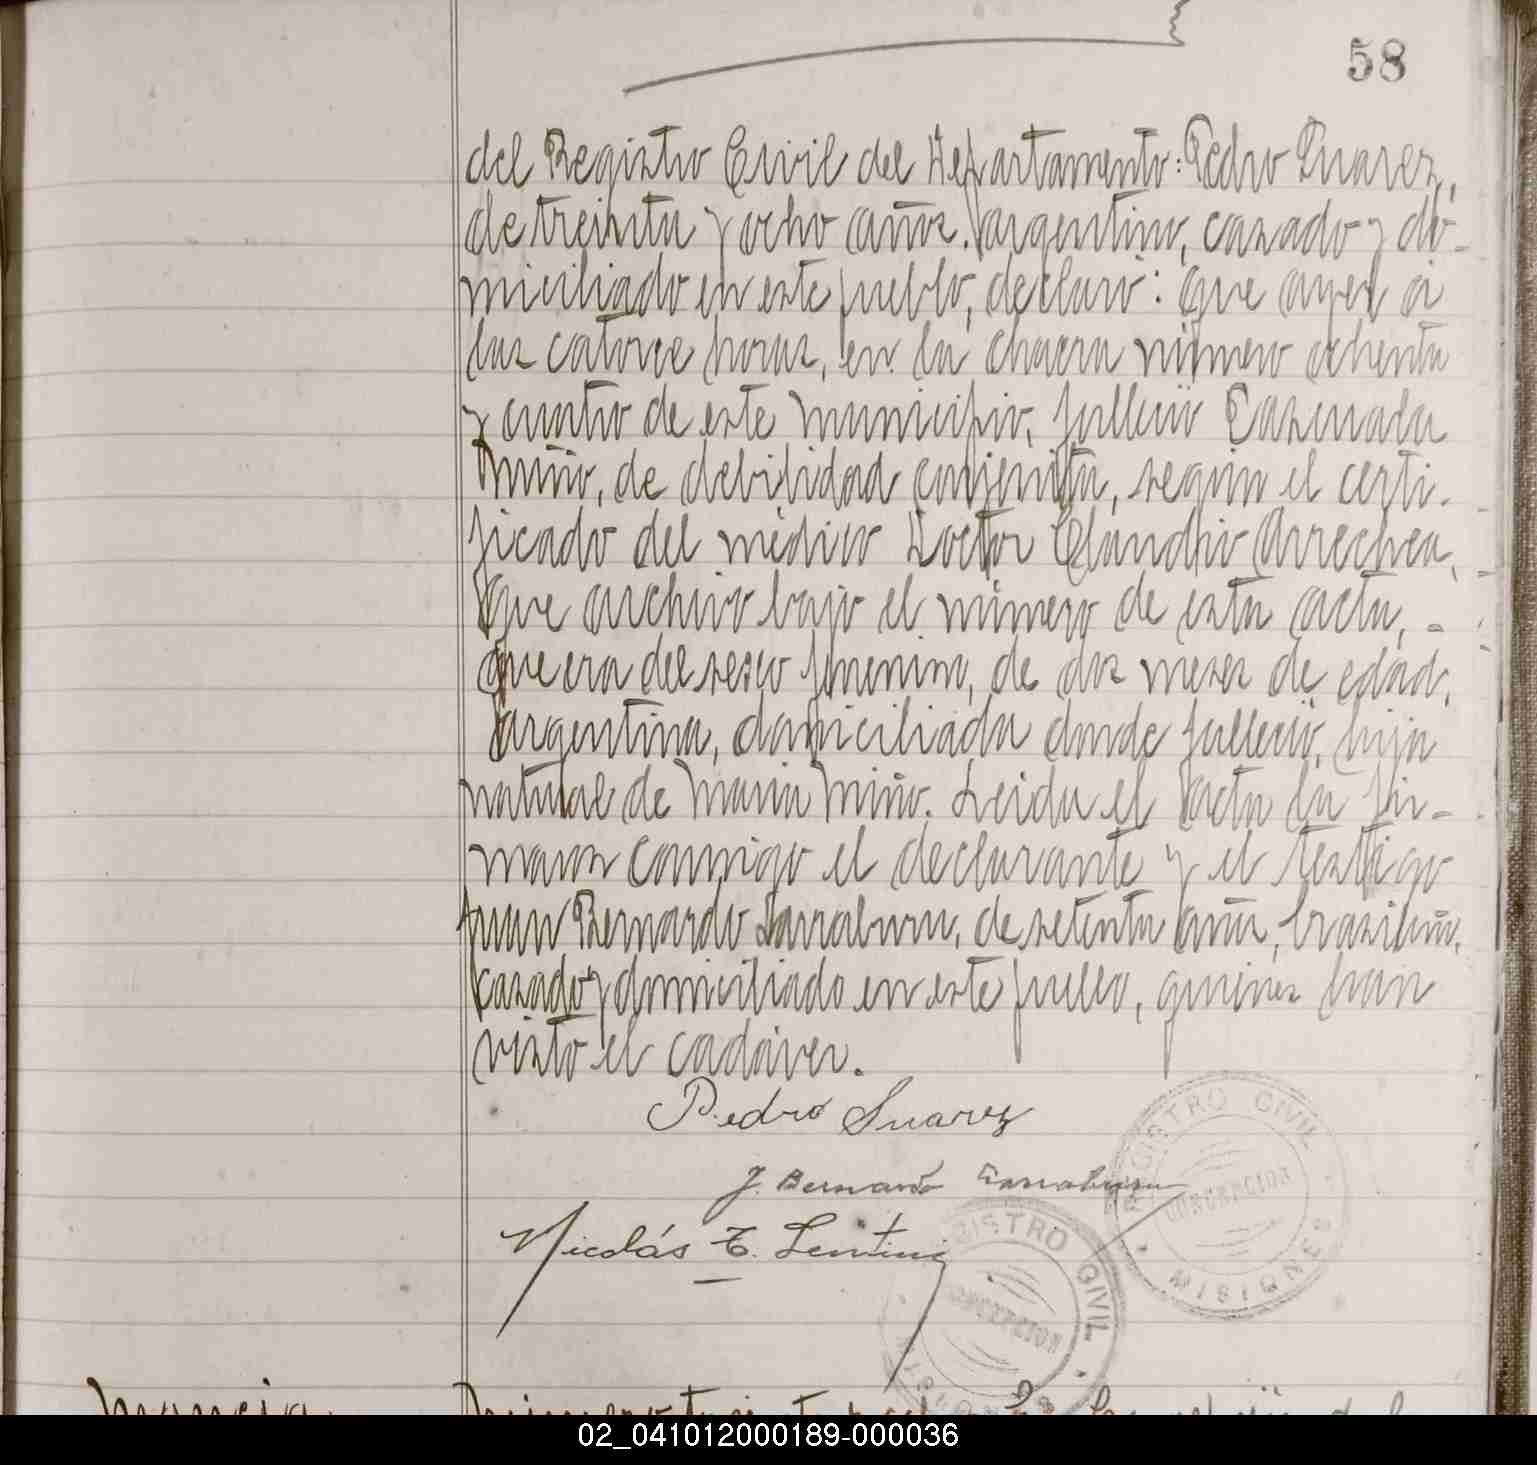 58
del Registro Civil del Departamento: Pedro Suarez,
de treinta y ocho años, argentino, casado y do-
miciliado en este pueblo, declaró: que ayer á
las catorce horas, en la chacra número ochenta
y cuatro de este municipio, falleció
Miño, de debilidad conjenita, según el certi-
ficado del médico Doctor Claudio Arrechea,
que archivo bajo el número de esta acta, -
que era del sexo femenino, de dos meses de edad,
argentina, domiciliada donde falleció, hija
natural de Maria Miño. Leida el acta la fir-
maron conmigo el declarante y el testigo
Juan Bernardo Larraburu, de setenta años, brasilero,
casado y domiciliado en este pueblo, quienes han
visto el cadáver.
Pedro Suarez
J. Bernardo Larraburu
Nicolás T. Lentini
REGISTRO CIVIL
CONCEPCION
MISIONES
REGISTRO CIVIL
CONCEPCION
MISIONES
02_041012000189-000036